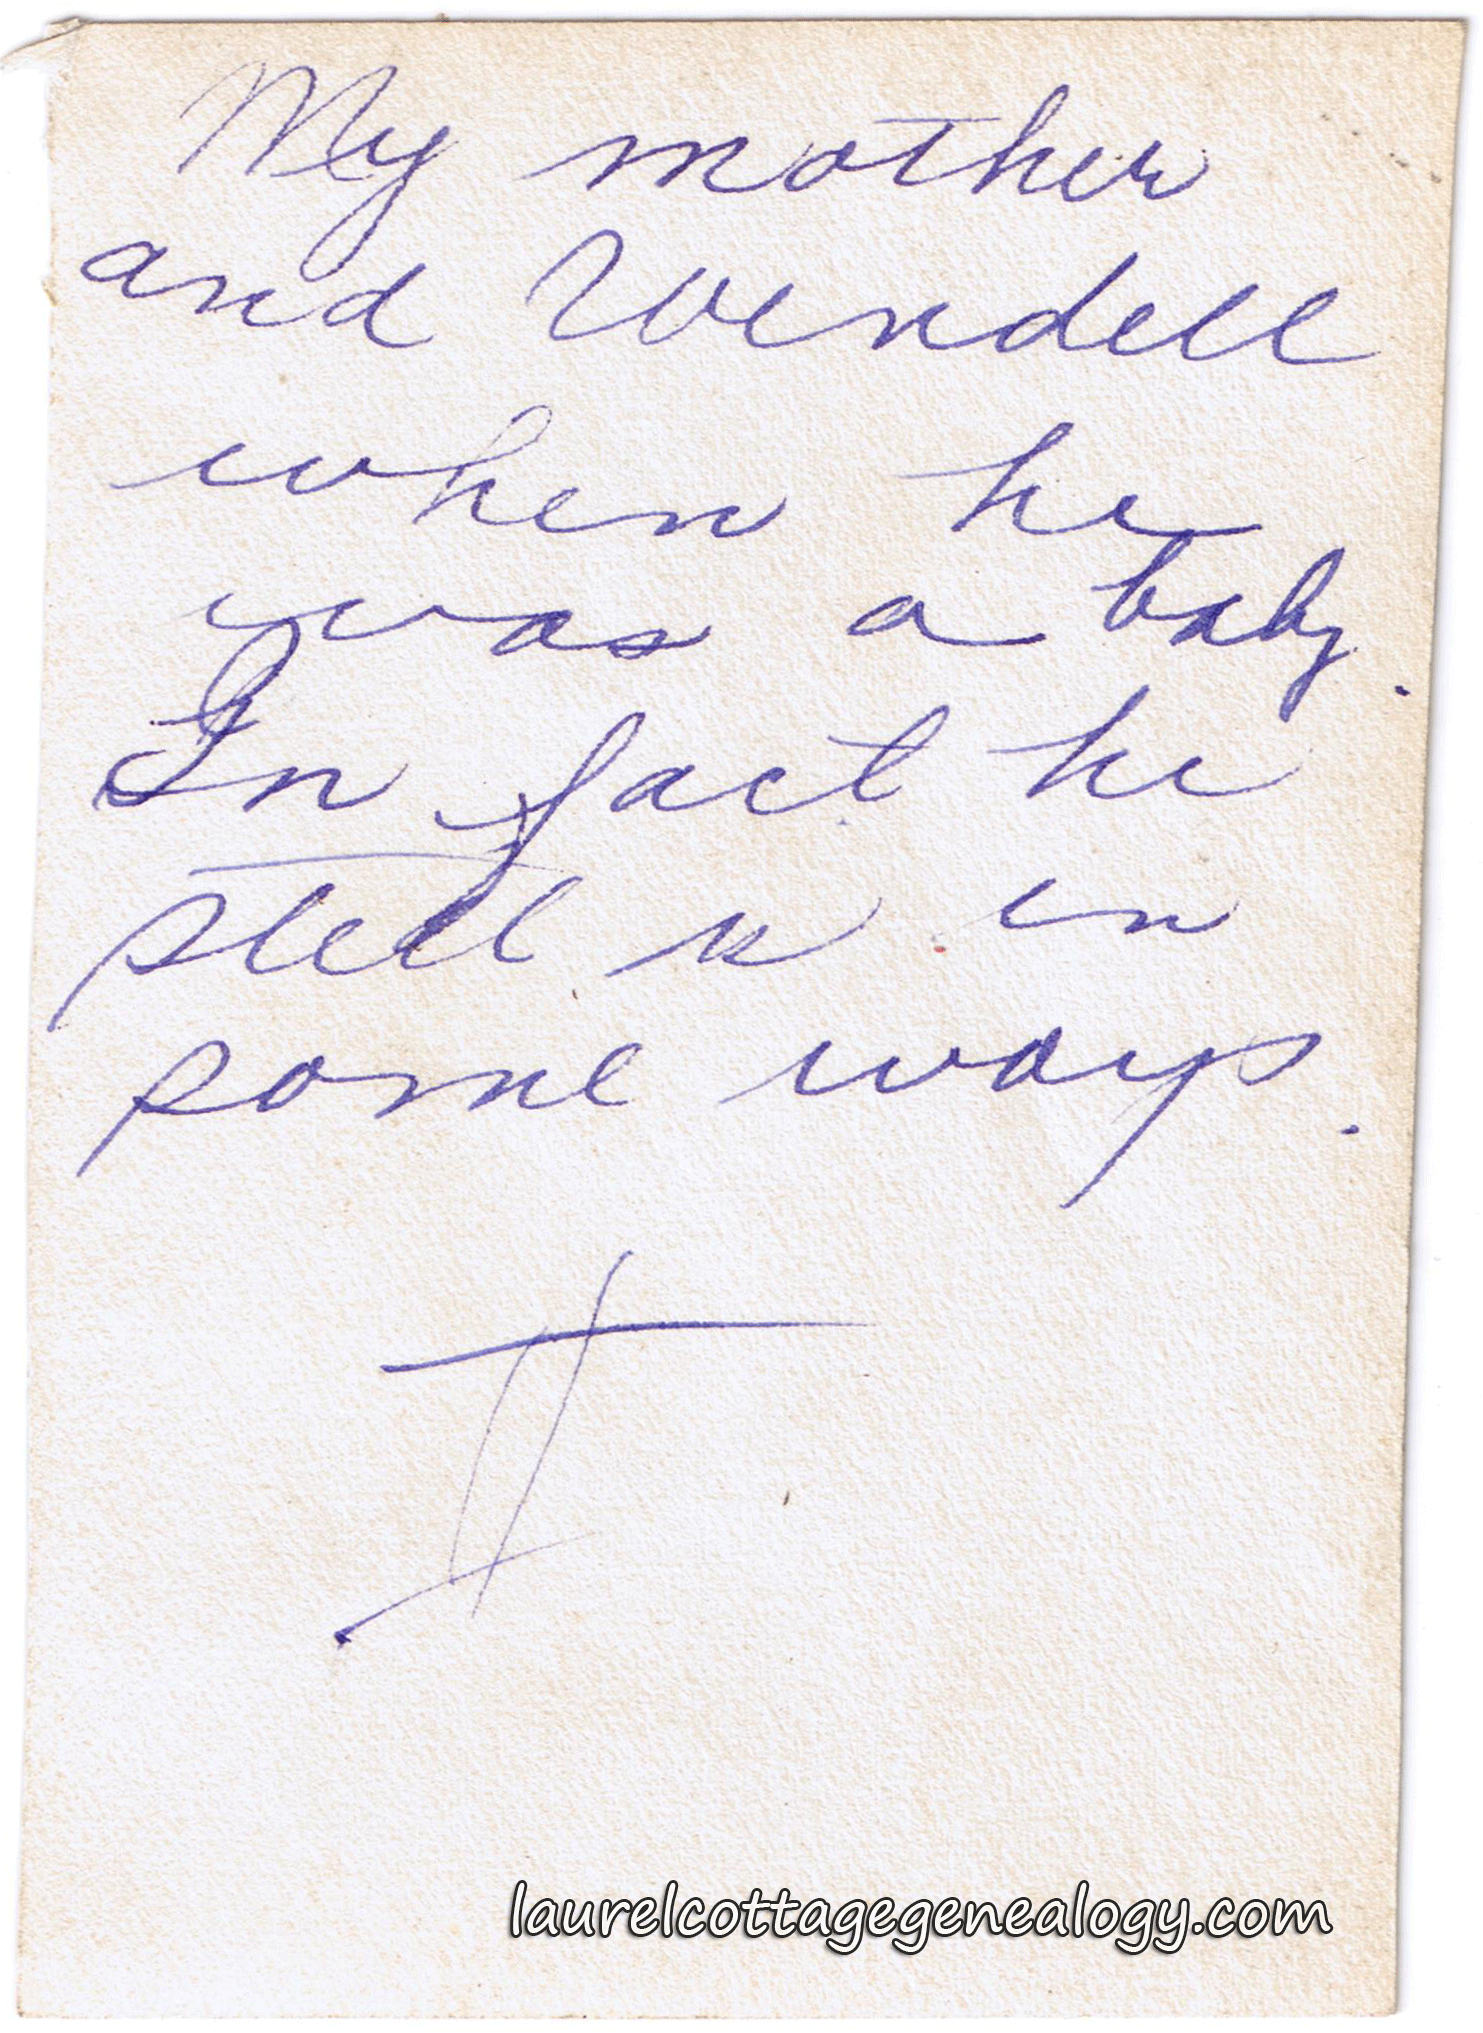 My mother
and Wendell
when he
was a baby.
In fact he
still is in
some ways.
II
laurelcottagegenealogy.com